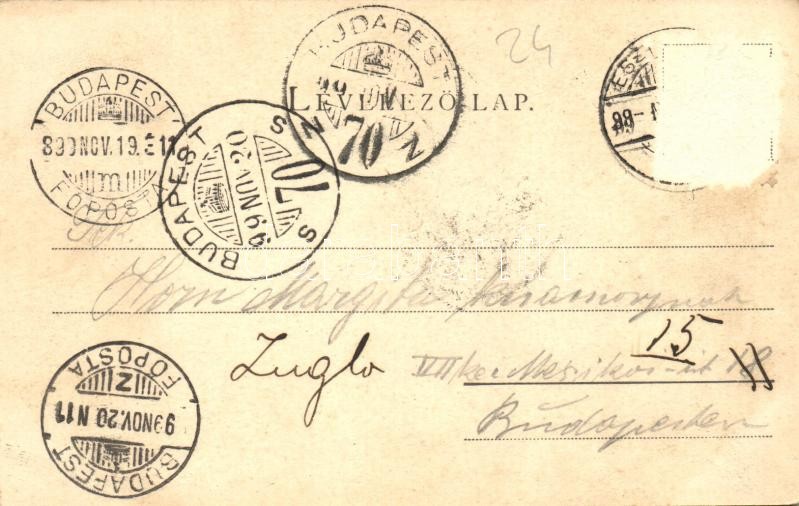 24
LEVELEZŐ-LAP.
BUDAPEST
899 NOV. 19. É 11
m
FŐPOSTA
BUDAPEST
N
70
N
ESZ
BUDAPEST
S
70
S
'99 NOV 20
Horn Margitka kisasszonynak
15
Zuglo VII ker Mexikói-út 18
Budapesten
BUDAPEST
99 NOV. 20 N 11
Z
FŐPOSTA